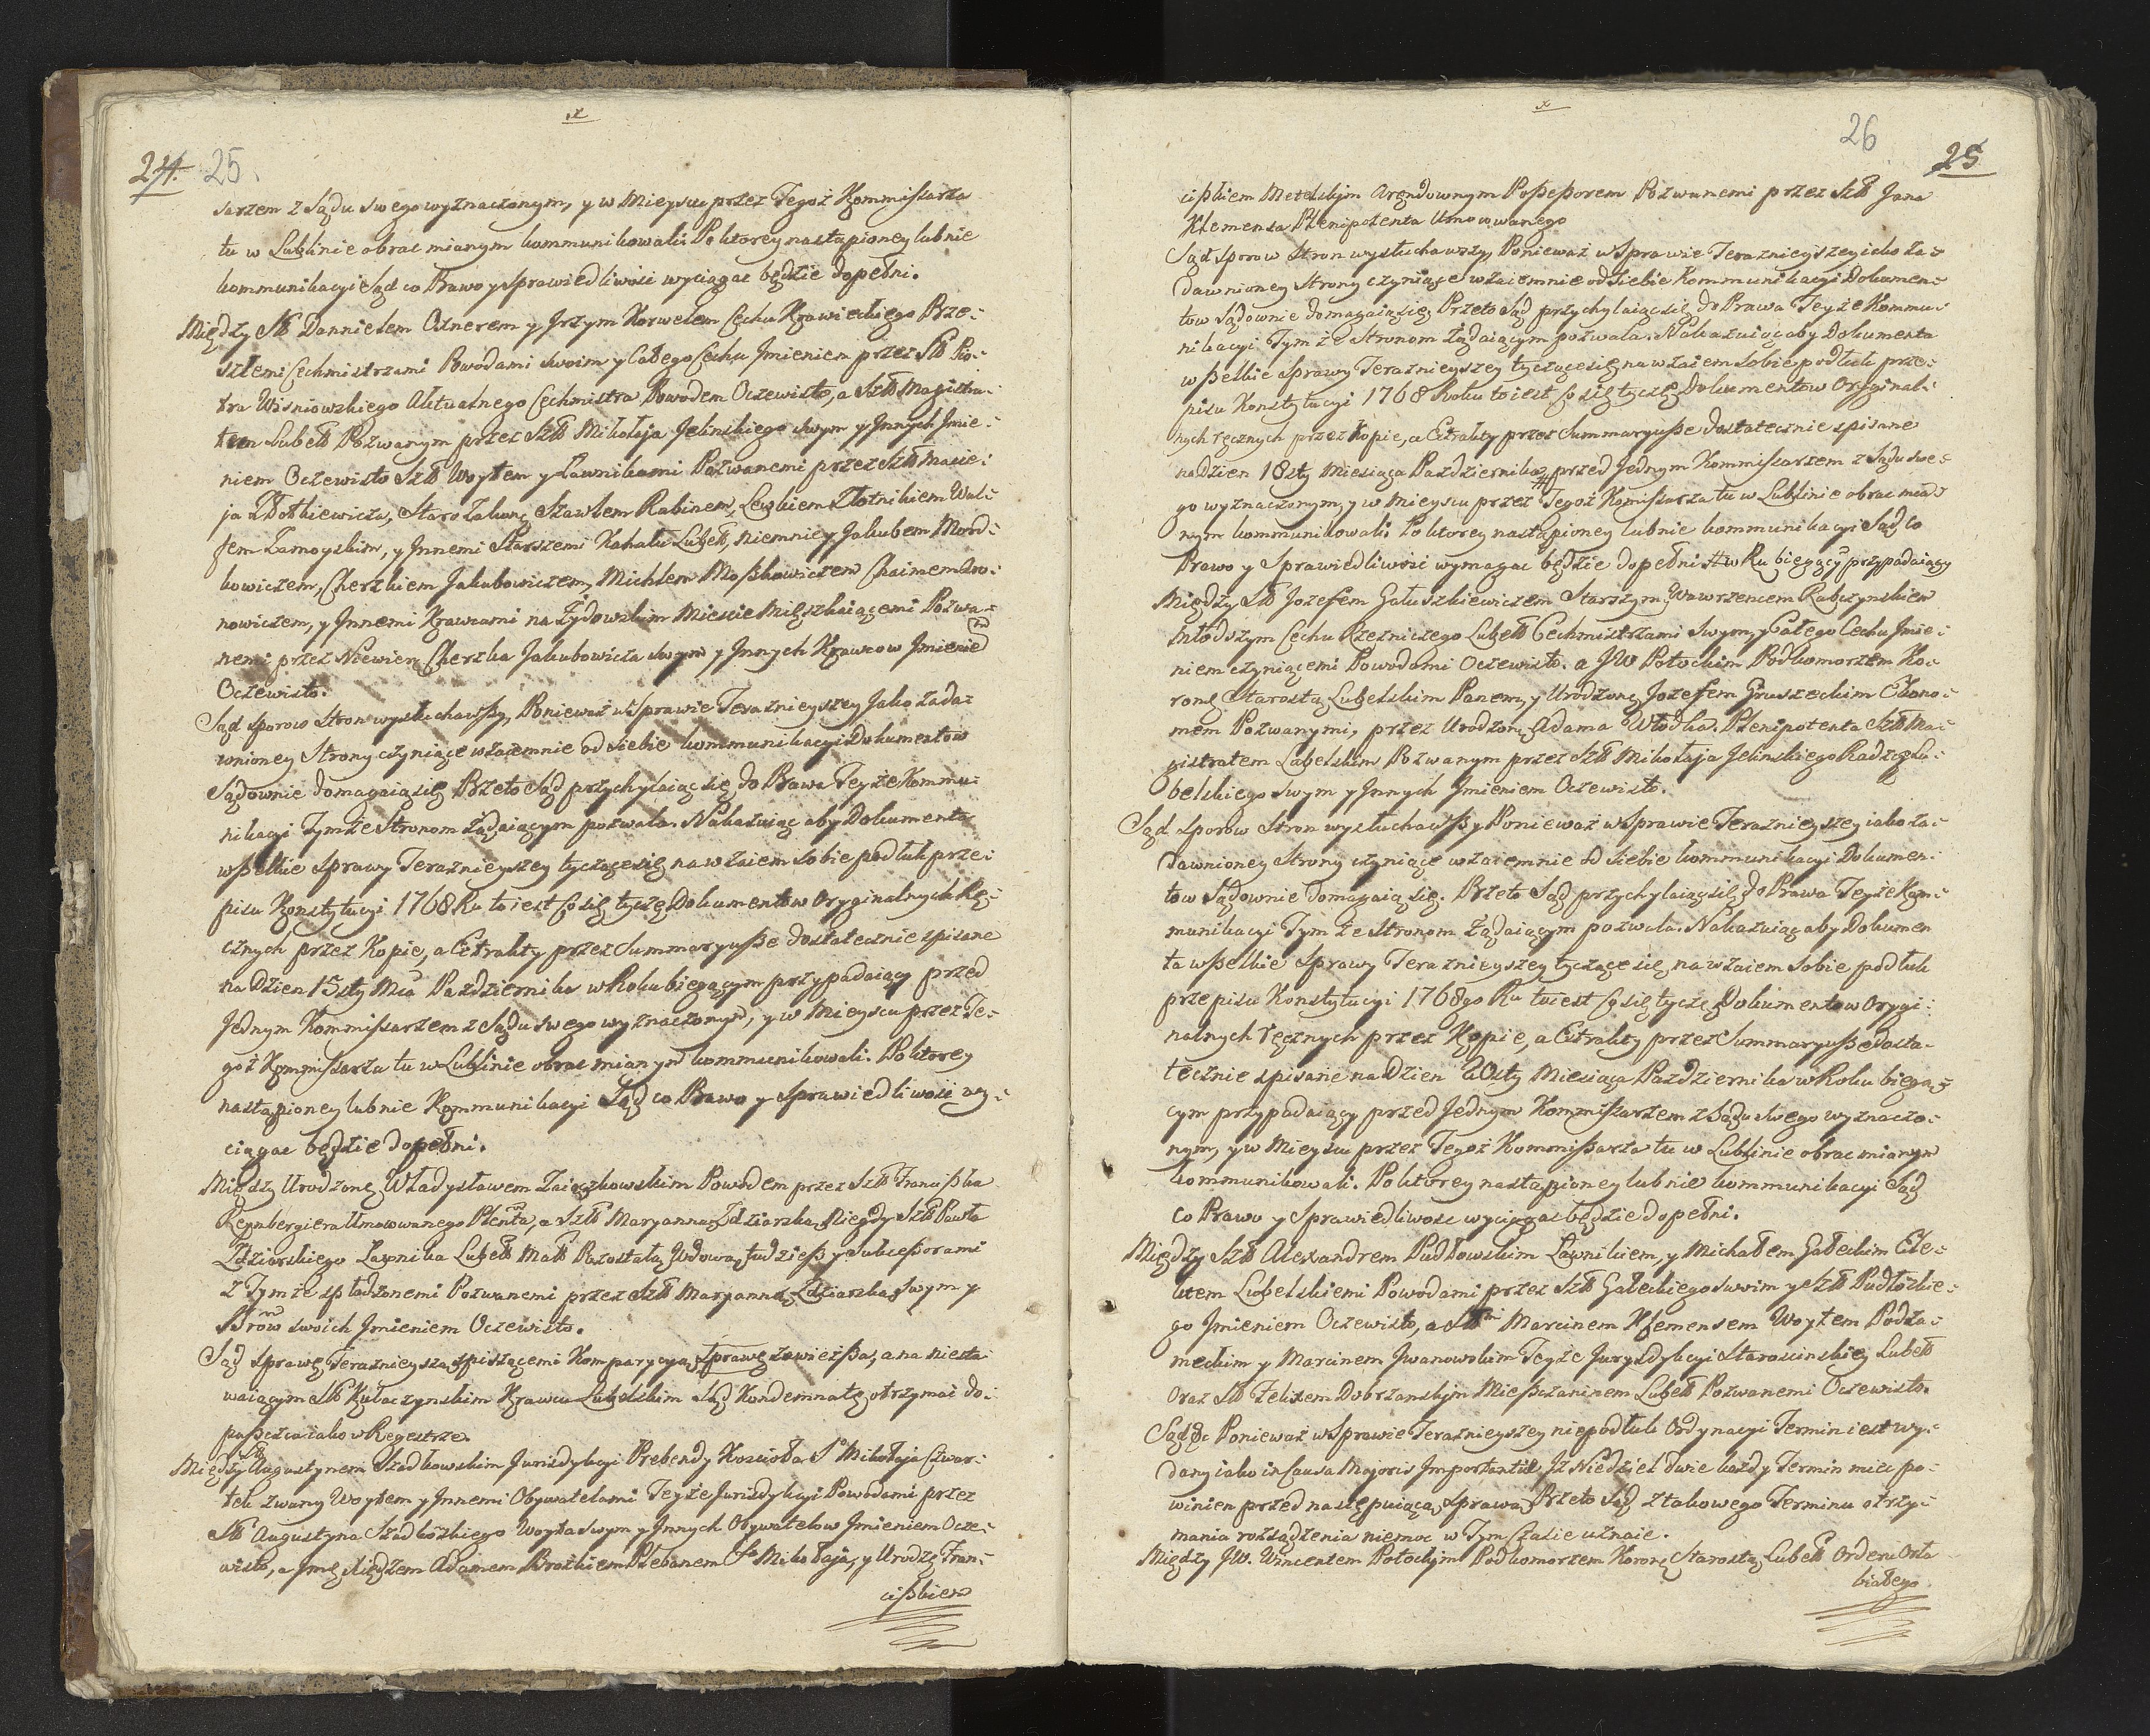 24. 25.
sarzem z Sądu swego wyznaczonym, y w Mieyscu przez Tegoż Kommißarza
tu w Lublinie obrac mianym kommunikowali. Po ktorey nastąpioney lub nie
kommunikacyi Sąd co Prawo y sprawiedliwości wyciągac będzie dopełni.
Między Sł Dannielem Oxnerem y Jrzym Korwelem Cechu Krawieckiego Prze-
szłemi Cechmistrzami Powodami swoim y Całego Cechu Jmieniem przez Sł Pio-
tra Wisniowskiego Aktualnego Cechmistra Powodem Oczewisto, a Szł Magistra-
tem Lubelł Pozwanym przez Szł Mikołaja Jelinskiego swym y Jnnych Jmie-
niem Oczewisto Szł Woytem y Ławnikami Pozwanemi przez Szł Macie-
ja Złotkiewicza, Staro Zakonę Szawłem Rabinem, Lewkiem Złotnikiem Wul-
fem Zamoyskim, y Jnnemi Starszemi Kahału Lubelł, niemniey Jakubem Mord-
kowiczem, Cherszkiem Jakubowiczem, Michlem Moßkowiczem Chaimem Aro-
nowiczem, y Jnnemi Krawcami na Żydowskim Miescie Mięszkaiącemi Pozwa-
nemi przez Niewier Cherszka Jakubowicza swym y Jnnych Krawcow Jmieniem
Oczewisto.
Sąd sporow Stron wysłuchawßy, Ponieważ w Sprawie Teraznieyszey Jako Zada-
wnioney Strony czyniące wzaiemnie od siebie kommunikacyi Dokumentow
Sądownie domagaią się Przeto Sąd przychylaiąc się do Prawa Teyże Kommu-
nikacyi Tymże Stronom Żądaiącym pozwala. Nakazuiąc aby Dokumenta
wßelkie Sprawy Teraznieyszey tyczące się nawzaiem sobie podług prze-
pisu Konstytucyi 1768 Ru to iest Co się tyczę Dokumentow Oryginalnych Rę-
cznych przez Kopie, a Extrakty przez Summaryuße dostatecznie spisane
na Dzien 15sty Mca Pazdziernika w Roku bieżącym przypadaiący przed
Jednym Kommißarzem z Sądu swego wyznaczonym, y w Mieyscu przez Te-
goż Kommißarza tu w Lublinie obrac mianym kommunikowali. Po ktorey
nastąpioney lub nie Kommunikacyi Sąd co Prawo y Sprawiedliwość wy-
ciągac będzie dopełni.
Między Urodzonę Władysławem Zaiączkowskim Powodem przez Szł Francißka
Reynbergiera Umocowanego Plenta, a Szł Maryanną Zdziarską, Niegdy Szł Pawła
Zdziarskiego Ławnika Lubelł Małł Pozostałą Wdową, tudzieß y Sukceßorami
z Tymże spłodzonemi Pozwanemi przez Szł Maryannę Zdziarską swym y
Brow swoich Jmieniem Oczewisto.
Sąd Sprawę Teraznieyszą spisącemi Komparycyą Sprawę zawießa, a na niesta-
waiącym Sł Kułaczynskim Krawcu Lubelskim Sąd Kondemnatę otrzymać do-
pußcza iako w Regestrze.
Między Sł Augustynem Szadkowskim Jurisdykcyi Prebendy Koscioła So Mikołaja Czwar-
tek zwany Woytem y Jnnemi Obywatelami Teyże Jurisdykcyi Powodami przez
Sł Augustyna Szadkoskiego Woyta swym y Jnnych Obywatelow Jmieniem Ocze-
wisto, a Jmę Xiędzem Adamem Brozkiem Plebanem So Mikołaja, y Urodzę Fran-
cißkiem
26
25
cißkiem Metelskym Arędownym Poßeßorem Pozwanemi przez Szł Jana
Klemensa Plenipotenta Umocowanego
Sąd sporow Stron wysłuchawszy, Ponieważ w Sprawie Teraznieyszey iako Za-
dawnioney Strony czyniące wzaiemnie od Siebie Kommunikacyi Dokumen-
tow Sądownie domagaią się, Przeto Sąd przychylaiąc się do Prawa Teyże Kommu-
nikacyi Tymże Stronom Żądaiącym pozwala. Nakazuiąc aby Dokumenta
wßelkie Sprawy Teraznieyszey tyczące się nawzaiem Sobie podług prze-
pisu Konstytucyi 1768 Roku to iest Co się tyczę Dokumentow Oryginal-
nych ręcznych przez Kopie, a Extrakty przez Summaryuße dostatecznie spisane
na Dzien 18sty Miesiąca Pazdziernika, # przed Jednym Kommißarzem z Sądu swe-
go wyznaczonym, y w Mieyscu przez Tegoż Komißarza tu w Lublinie obrac mia-
nym kommunikowali. Po ktorey nastąpioney lub nie kommunikacyi Sąd, co
Prawo y Sprawiedliwośc wymagac będzie dopełni # w Ru bieżący przypadaiący
Między Sł Jozefem Gałuszkiewiczem Starszym, Wawrzencem Rabczynskiem
młodszym Cechu Rzezniczego Lubelł Cechmistrzami Swym, y Całego Cechu Jmie-
niem czyniącemi Powodami Oczewisto. a JW Potockim Podkomorzem Ko-
ronę Starostą Lubelskim Panem, y Urodzonę Jozefem Gruszeckim Ekono-
mem Pozwanymi, przez Urodzonę Adama Włodka. Plenipotenta Szł Ma-
gistratem Lubelskim Pozwanym przez Szł Mikołaja Jelinskiego Radzcę Lu-
belskiego swym y Jnnych Jmieniem Oczewisto.
Sąd Sporow Stron wysłuchawßy Ponieważ w Sprawie Teraznieyszey iako za-
dawnioney Strony czyniące wzaiemnie od siebie kommunikacyi Dokumen-
tow Sądownie domagaią się. Przeto Sąd przychylaiąc się do Prawa Teyże Kom-
munikacyi Tymże Stronom Żądaiącym pozwala. Nakazuiąc aby Dokumen
ta wßelkie Sprawy Teraznieyszey tyczące się nawzaiem Sobie podług
przepisu Konstytucyi 1768go Ru to iest Co się tyczę Dokumentow Orygi-
nalnych ręcznych przez Kopie, a Extrakty przez Summaryuße dosta-
tecznie spisane na Dzien 20sty Miesiąca Pazdziernika w Roku biegą-
cym przypadaiący przed Jednym Kommißarzem z Sądu Swego wyznaczo-
nym, y w Mieyscu przez Tegoż Kommißarza tu w Lublinie obrac mianym
kommunikowali. Po ktorey nastąpioney lub nie kommunikacyi Sąd
co Prawo y Sprawiedliwosc wyciągac będzie dopełni.
Między Szł Alexandrem Pudłowskim Ławnikiem, y Michałem Gałeckim Ele-
ktem Lubelskiemi Powodami przez Szł Gałeckiego Swoim y Szł Pudłoskie-
go Jmieniem Oczewisto, a Sł Marcinem Klemensem Woytem Podza-
meckim y Marcinem Jwanowskim Teyże Jurysdykcyi Staroscinskiey Lubelł
oraz Sł Felixem Dobrzanskym Mießczaninem Lubelł Pozwanemi Oczewisto.
Sąd &c Ponieważ w Sprawie Teraznieyszey nie podług Ordynacyi Termin iest wy-
dany iako in Causa Majoris Jmportantiæ Jż Niedziel dwie każdy Termin miec po-
winien przed następuiącą Sprawą, Przeto Sąd, z takowego Terminu otrzy-
mania rozsądzenia niemoc w Tym Czasie uznaie.
Między JW. Wincentem Potockym Podkomorzem Koronę Starostą Lubelł Orderu Orła
białego